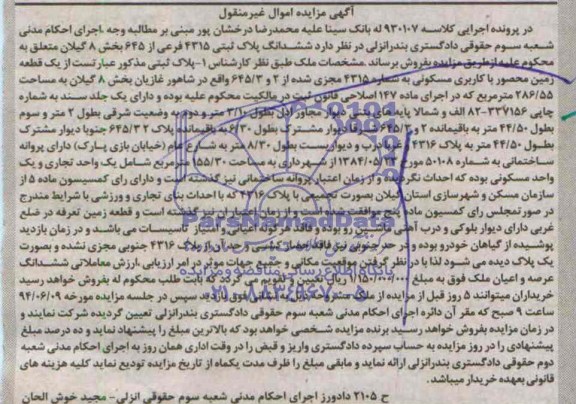 آگهی مزایده اموال غیرمنقول
در پرونده اجرایی کلاسه ۹۳۰۱۰۷ له بانک سینا علیه محمدرضا درخشان پور مبنی بر مطالبه وجه .اجرای احکام مدنی
شعبه سوم حقوقی دادگستری بندرانزلی در نظر دارد ششدانگ پلاک ثبتی ۴۳۱۵ فرعی از ۶۴۵ بخش ۸ گیلان متعلق به
محکوم علیه ازطریق مزایده بفروش برساند .مشخصات ملک طبق نظر کارشناس ۱-پلاک ثبتی مذکور عبارتست از یک قطعه
زمین محصور با کاربری مسکونی به شماره ۴۳۱۵ مجزی شده از ۲ و ۶۴۵/۳ واقع در شاهور غازیان بخش ۸ گیلان به مساحت
۲۸۶/۵۵ مترمربع که در اجرای ماده ۱۴۷ اصلاحی قانون ثبت در مالکیت محکوم علیه بوده و دارای یک جلد سند به شماره
چاپی ۳۳۷۱۵۶-۸۲ الف و شمالا پایه های بتنی دیوار مجاور اول بطول ۳/۱۰ متر و دوم به وضعیت شرقی بطول ۲ متر و سوم
بطول ۴۴/۵۰ متر به باقیمانده ۲ و ۶۴۵/۳ شرقا دیوار مشترک بطول ۶/۳۰ به باقیمانده پلاک ۶۴۵/۳۲ جنوبا دیوار مشترک
بطول ۴۴/۵۰ متر به پلاک ۴۳۱۶ غربا درب و دیواریست بطول ۸/۳۰ متر به شارع عام (خیابان بازی پارک) دارای پروانه
ساختمانی به شماره ۵۰۱۰۸ مورخ ۱۳۸۴/۰۵/ از شهرداری به مساحت ۱۵۵/۳۰ مترمربع شامل یک واحد تجاری و یک
واحد مسکونی بوده که احداث نگردیده و از زمان اعتبار پروانه ساختمانی نیز گذشته است و دارای رای کمیسیون ماده ۵ از
سازمان مسکن و شهرسازی استان گیلان بصورت تجمیعی با پلاک ۴۳۱۶ که با احداث بنای تجاری و ورزشی با شرایط مندرج
در صورتمجلس رای کمسیون ماده پنج موافقت شده است و از زمان اعتبار آن نیز گذشته است و قطعه زمین تعرفه در ضلع
غربی دارای دیوار بلوکی و درب آهنی ماشین رو بوده و فاقد هرگونه اعیانی و امتیاز تاسیسات می باشد و در زمان بازدید
پوشیده از گیاهان خودرو بوده و در حد جنوبی نیز فاقد حصار کشی و حد آن از پلاک ۴۳۱۶ جنوبی مجزی نشده و بصورت
یک پلاک دیده می شود لذا با در نظر گرفتن موقعیت مکانی و جمیع جهات موثر در امر ارزیابی .ارزش معاملاتی ششدانگ
عرصه و اعیان ملک فوق به مبلغ ۱/۱۵۰/۰۰۰/۰۰۰ ریال تعیین و تقویم می گردد که بابت طلب محکوم له بفروش خواهد رسید
خریداران میتوانند ۵ روز قبل از مزایده از ملک فوق بازدید سپس در جلسه مزایده مورخه ۹۴/۰۶/۰۹
ساعت ۹ صبح که مقر آن دائره اجرای احکام مدنی شعبه سوم حقوقی دادگستری بندرانزلی تعیین گردیده شرکت نمایند و
در زمان مزایده بفروش خواهد رسید برنده مزایده شخصی خواهد بود که بالاترین مبلغ را پیشنهاد نماید و ده درصد مبلغ
پیشنهادی را در روز مزایده به حساب سپرده دادگستری واریز و قبض را در وقت اداری همان روز به اجرای احکام مدنی شعبه
دوم حقوقی دادگستری بندرانزلی ارائه نماید و مابقی مبلغ را ظرف مدت یکماه از تاریخ مزایده تودیع نماید کلیه هزینه های
قانونی بعهده خریدار میباشد.
ح ۲۱۰۵ دادورز اجرای احکام مدنی شعبه سوم حقوقی انزلی- مجید خوش الحان